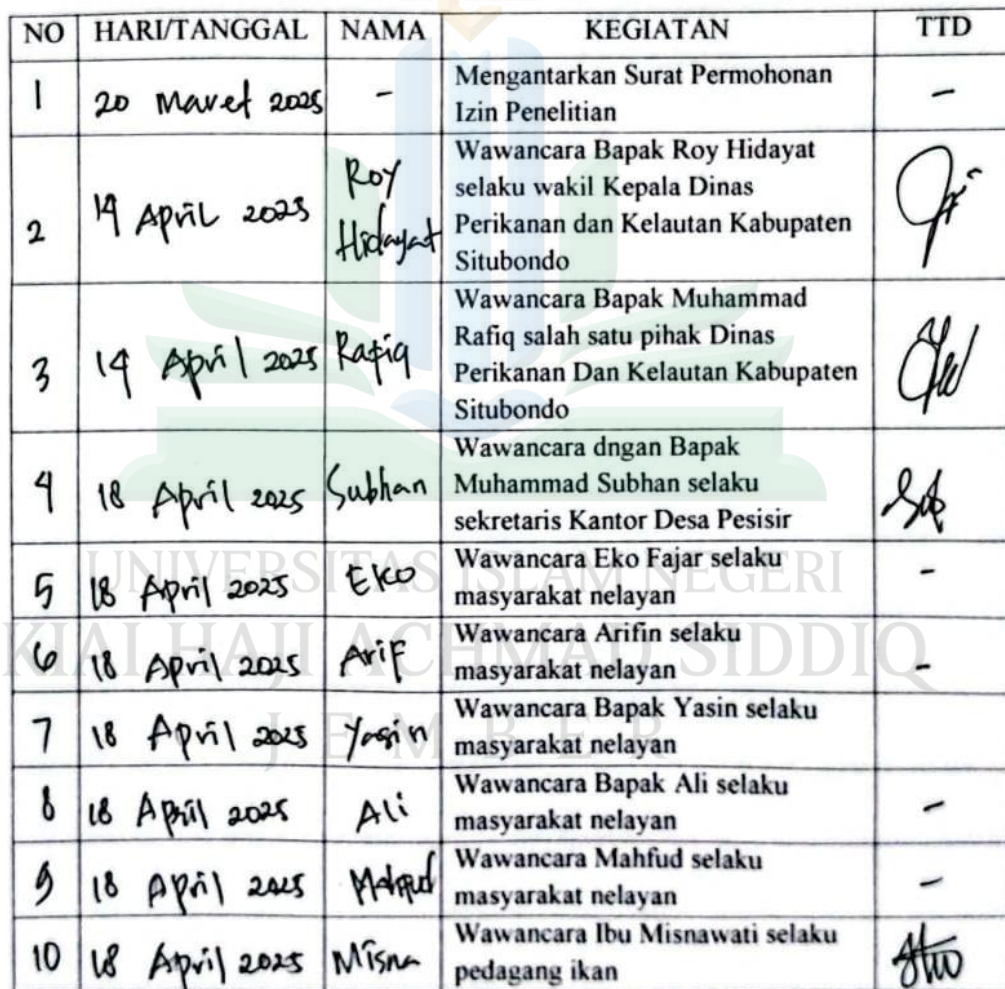 NO HARI/TANGGAL NAMA KEGIATAN TTD
1 20 Maret 2025 - Mengantarkan Surat Permohonan
Izin Penelitian -
2 14 April 2025 Roy
Hidayat Wawancara Bapak Roy Hidayat
selaku wakil Kepala Dinas
Perikanan dan Kelautan Kabupaten
Situbondo
3 14 April 2025 Rafiq Wawancara Bapak Muhammad
Rafiq salah satu pihak Dinas
Perikanan Dan Kelautan Kabupaten
Situbondo
4 18 April 2025 Subhan Wawancara dngan Bapak
Muhammad Subhan selaku
sekretaris Kantor Desa Pesisir
5 18 April 2025 Eko Wawancara Eko Fajar selaku
masyarakat nelayan -
6 18 April 2025 Arif Wawancara Arifin selaku
masyarakat nelayan -
7 18 April 2025 Yasin Wawancara Bapak Yasin selaku
masyarakat nelayan
8 18 April 2025 Ali Wawancara Bapak Ali selaku
masyarakat nelayan -
9 18 April 2025 Mahfud Wawancara Mahfud selaku
masyarakat nelayan -
10 18 April 2025 Misna Wawancara Ibu Misnawati selaku
pedagang ikan
UNIVERSITAS ISLAM NEGERI
KIAI HAJI ACHMAD SIDDIQ
J E M B E R